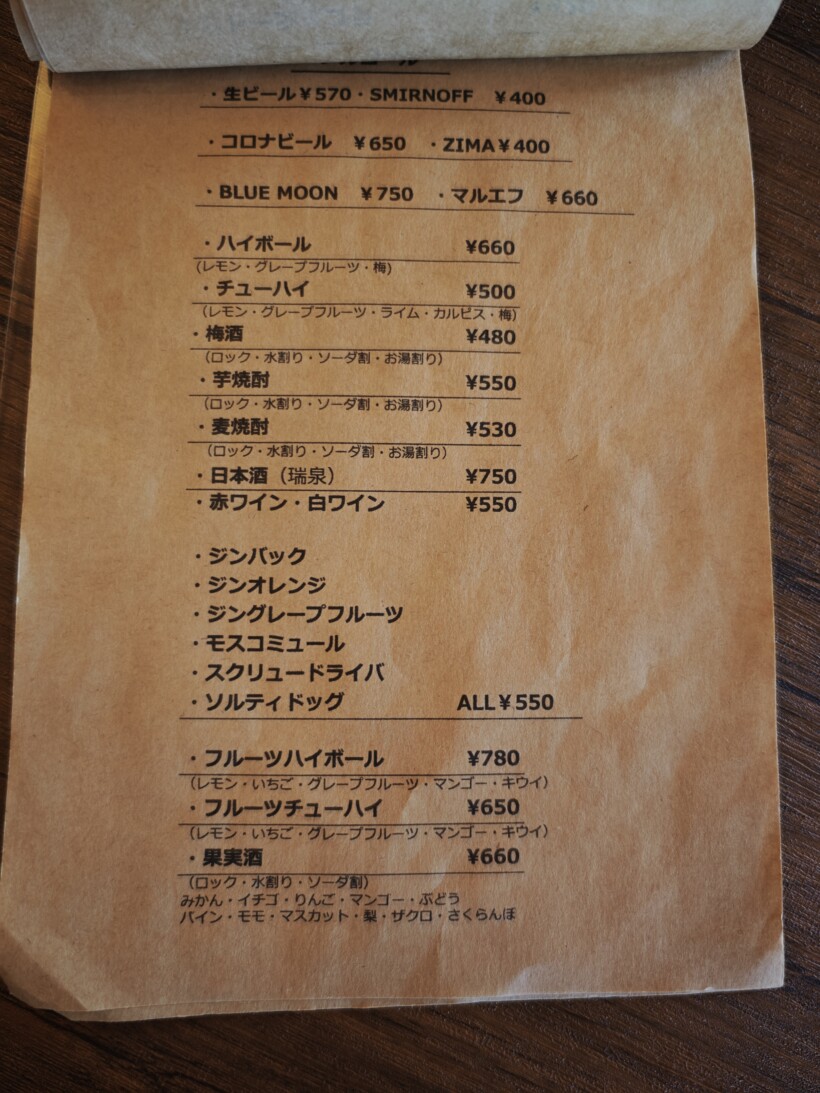 ・生ビール¥570・SMIRNOFF ¥400
・コロナビール ¥650 ・ZIMA¥400
・BLUE MOON ¥750 ・マルエフ ¥660
・ハイボール ¥660
(レモン・グレープフルーツ・梅)
・チューハイ ¥500
(レモン・グレープフルーツ・ライム・カルピス・梅)
・梅酒 ¥480
(ロック・水割り・ソーダ割・お湯割り)
・芋焼酎 ¥550
(ロック・水割り・ソーダ割・お湯割り)
・麦焼酎 ¥530
(ロック・水割り・ソーダ割・お湯割り)
・日本酒(瑞泉) ¥750
・赤ワイン・白ワイン ¥550
・ジンバック
・ジンオレンジ
・ジングレープフルーツ
・モスコミュール
・スクリュードライバ
・ソルティドッグ ALL¥550
・フルーツハイボール ¥780
(レモン・いちご・グレープフルーツ・マンゴー・キウイ)
・フルーツチューハイ ¥650
(レモン・いちご・グレープフルーツ・マンゴー・キウイ)
・果実酒 ¥660
(ロック・水割り・ソーダ割)
みかん・イチゴ・りんご・マンゴー・ぶどう
パイン・モモ・マスカット・梨・ザクロ・さくらんぼ